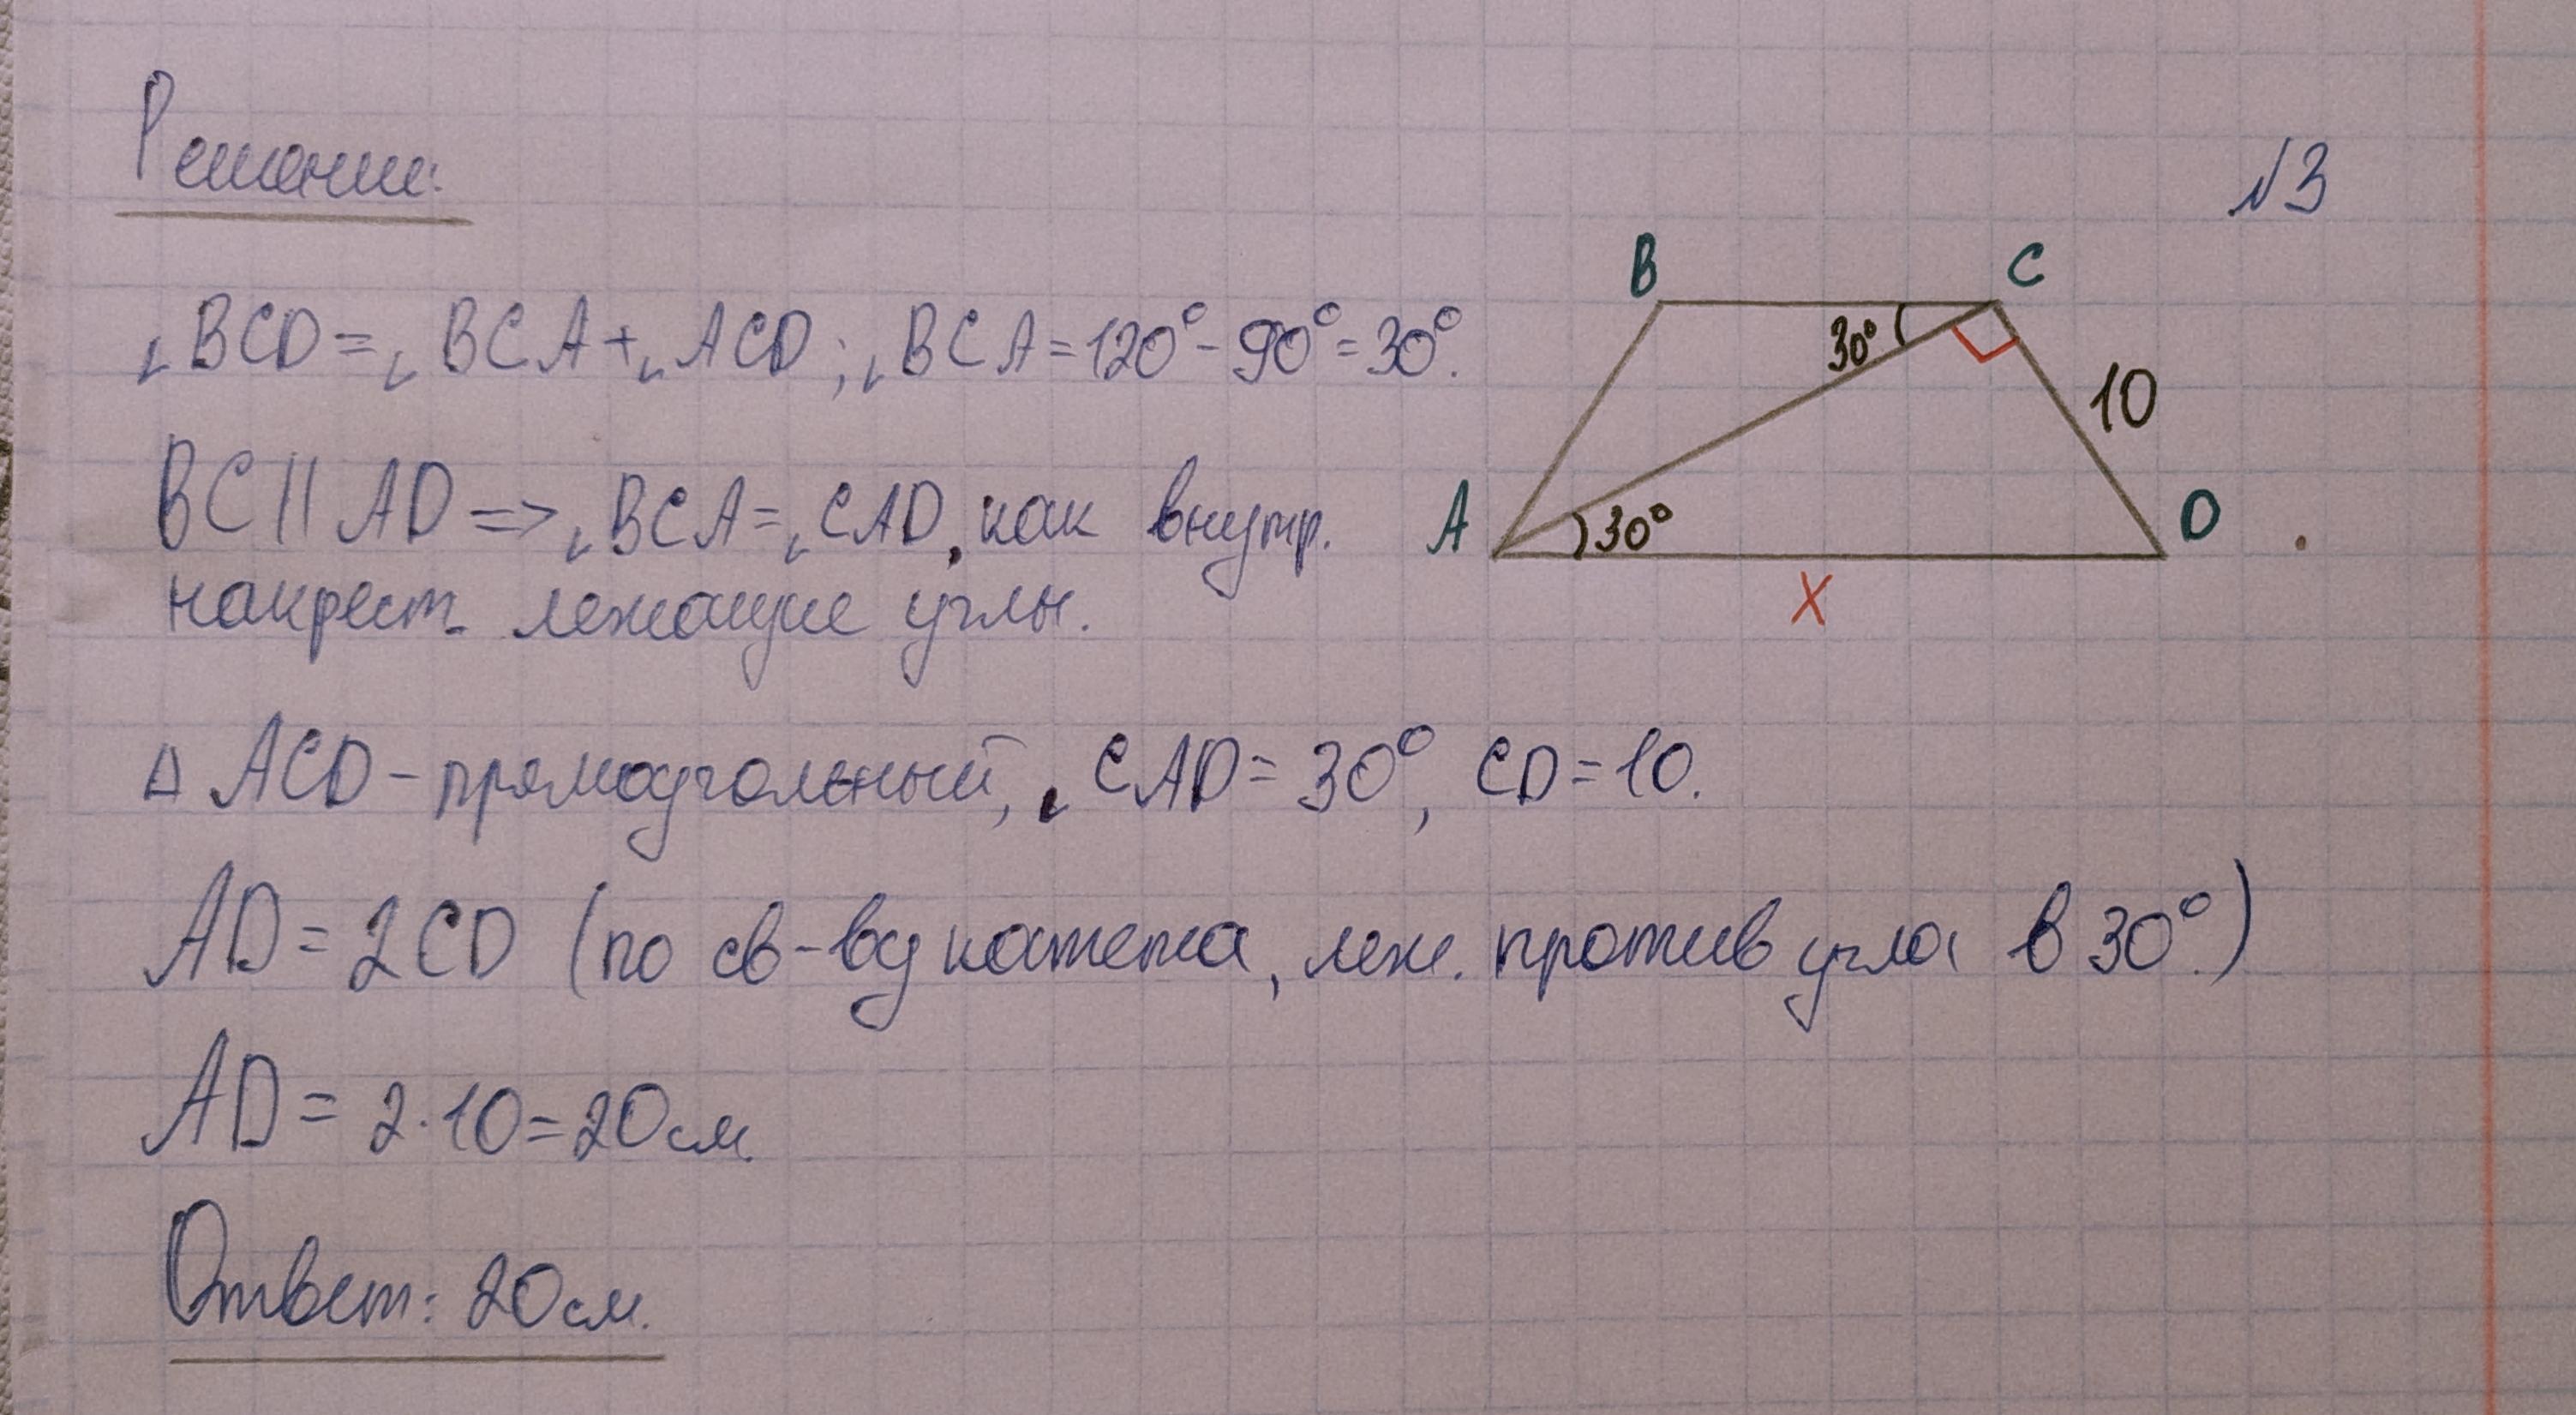 Решение:
№3
∠BCD = ∠BCA + ∠ACD; ∠BCA = 120° - 90° = 30°.
BC || AD => ∠BCA = ∠CAD, как внутр.
накрест. лежащие углы.
B
C
30°
10
A
30°
D
X
Δ ACD - прямоугольный, ∠CAD = 30°, CD = 10.
AD = 2CD (по св-ву катета, леж. против угла в 30°.)
AD = 2·10 = 20 см.
Ответ: 20 см.